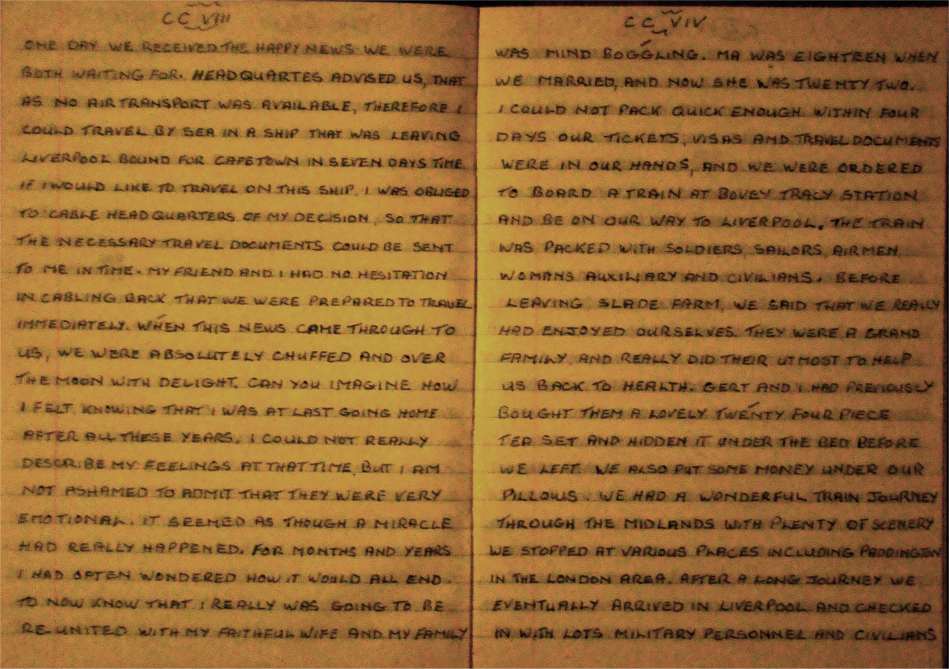 CC VIII
ONE DAY WE RECEIVED THE HAPPY NEWS WE WERE
BOTH WAITING FOR. HEADQUARTES ADVISED US, THAT
AS NO AIR TRANSPORT WAS AVAILABLE, THEREFORE I
COULD TRAVEL BY SEA IN A SHIP THAT WAS LEAVING
LIVERPOOL BOUND FOR CAPETOWN IN SEVEN DAYS TIME.
IF I WOULD LIKE TO TRAVEL ON THIS SHIP. I WAS OBLIGED
TO CABLE HEADQUARTERS OF MY DECISION, SO THAT
THE NECESSARY TRAVEL DOCUMENTS COULD BE SENT
TO ME IN TIME. MY FRIEND AND I HAD NO HESITATION
IN CABLING BACK THAT WE WERE PREPARED TO TRAVEL
IMMEDIATELY. WHEN THIS NEWS CAME THROUGH TO
US, WE WERE ABSOLUTELY CHUFFED AND OVER
THE MOON WITH DELIGHT. CAN YOU IMAGINE HOW
I FELT, KNOWING THAT I WAS AT LAST GOING HOME
AFTER ALL THESE YEARS. I COULD NOT REALLY
DESCRIBE MY FEELINGS AT THAT TIME, BUT I AM
NOT ASHAMED TO ADMIT THAT THEY WERE VERY
EMOTIONAL. IT SEEMED AS THOUGH A MIRACLE
HAD REALLY HAPPENED. FOR MONTHS AND YEARS
I HAD OFTEN WONDERED HOW IT WOULD ALL END.
TO NOW KNOW THAT I REALLY WAS GOING TO BE
RE UNITED WITH MY FAITHFUL WIFE AND MY FAMILY
CC VIV
WAS MIND BOGGLING. MA WAS EIGHTEEN WHEN
WE MARRIED, AND NOW SHE WAS TWENTY TWO.
I COULD NOT PACK QUICK ENOUGH WITHIN FOUR
DAYS OUR TICKETS, VISAS AND TRAVEL DOCUMENTS
WERE IN OUR HANDS, AND WE WERE ORDERED
TO BOARD A TRAIN AT BOVEY TRACY STATION
AND BE ON OUR WAY TO LIVERPOOL. THE TRAIN
WAS PACKED WITH SOLDIERS, SAILORS, AIRMEN
WOMANS AUXILIARY AND CIVILIANS. BEFORE
LEAVING SLADE FARM, WE SAID THAT WE REALLY
HAD ENJOYED OURSELVES. THEY WERE A GRAND
FAMILY, AND REALLY DID THEIR UTMOST TO HELP
US BACK TO HEALTH. GERT AND I HAD PREVIOUSLY
BOUGHT THEM A LOVELY TWENTY FOUR PIECE
TEA SET AND HIDDEN IT UNDER THE BED BEFORE
WE LEFT. WE ALSO PUT SOME MONEY UNDER OUR
PILLOWS. WE HAD A WONDERFUL TRAIN JOURNEY
THROUGH THE MIDLANDS WITH PLENTY OF SCENERY
WE STOPPED AT VARIOUS PLACES INCLUDING PADDINGTON
IN THE LONDON AREA. AFTER A LONG JOURNEY WE
EVENTUALLY ARRIVED IN LIVERPOOL AND CHECKED
IN WITH LOTS MILITARY PERSONNEL AND CIVILIANS